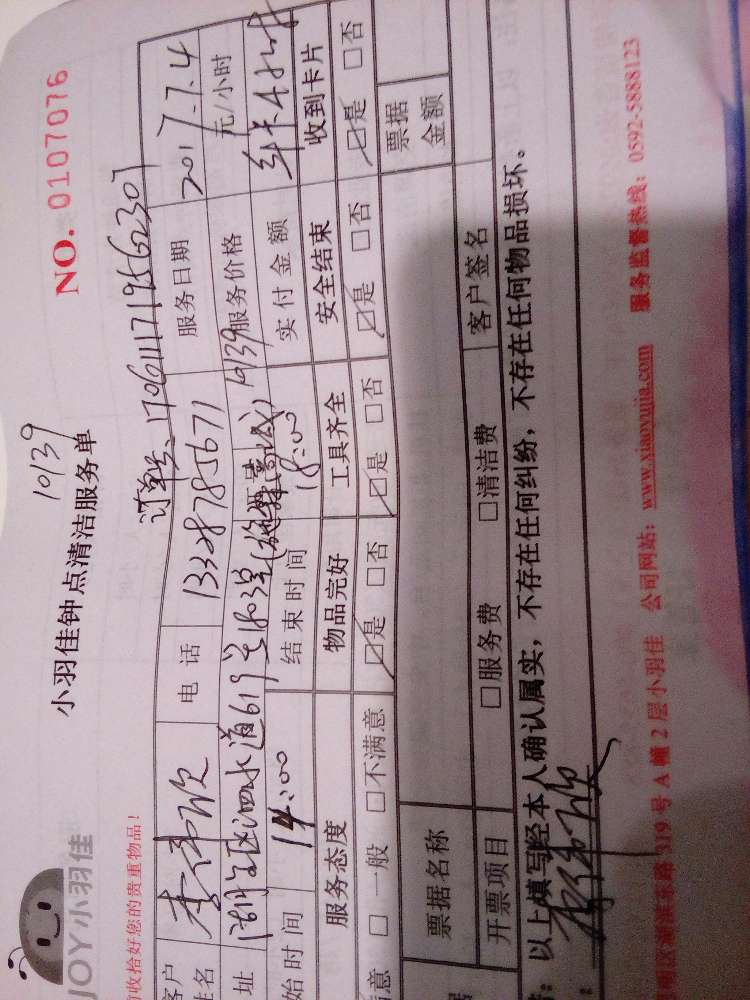 10139
NO. 0107076
JOY小羽佳
小羽佳钟点清洁服务单
收拾好您的贵重物品！
订单号：1706111719562307
客户
姓名
电话 13328785671
服务日期 2017.7.4
址
619号
10139
服务价格 元/小时
始时间 14:00 结束时间 18:00 实付金额
服务态度 物品完好 工具齐全 安全结束 收到卡片
意 □一般 □不满意 ☑是 □否 ☑是 □否 ☑是 □否 ☑是 □否
票据名称 票据金额
开票项目 □服务费 □清洁费 客户签名
以上填写经本人确认属实，不存在任何纠纷，不存在任何物品损坏。
319号A幢2层小羽佳 公司网站：www.xiaoyujia.com 服务监督热线：0592-5888123